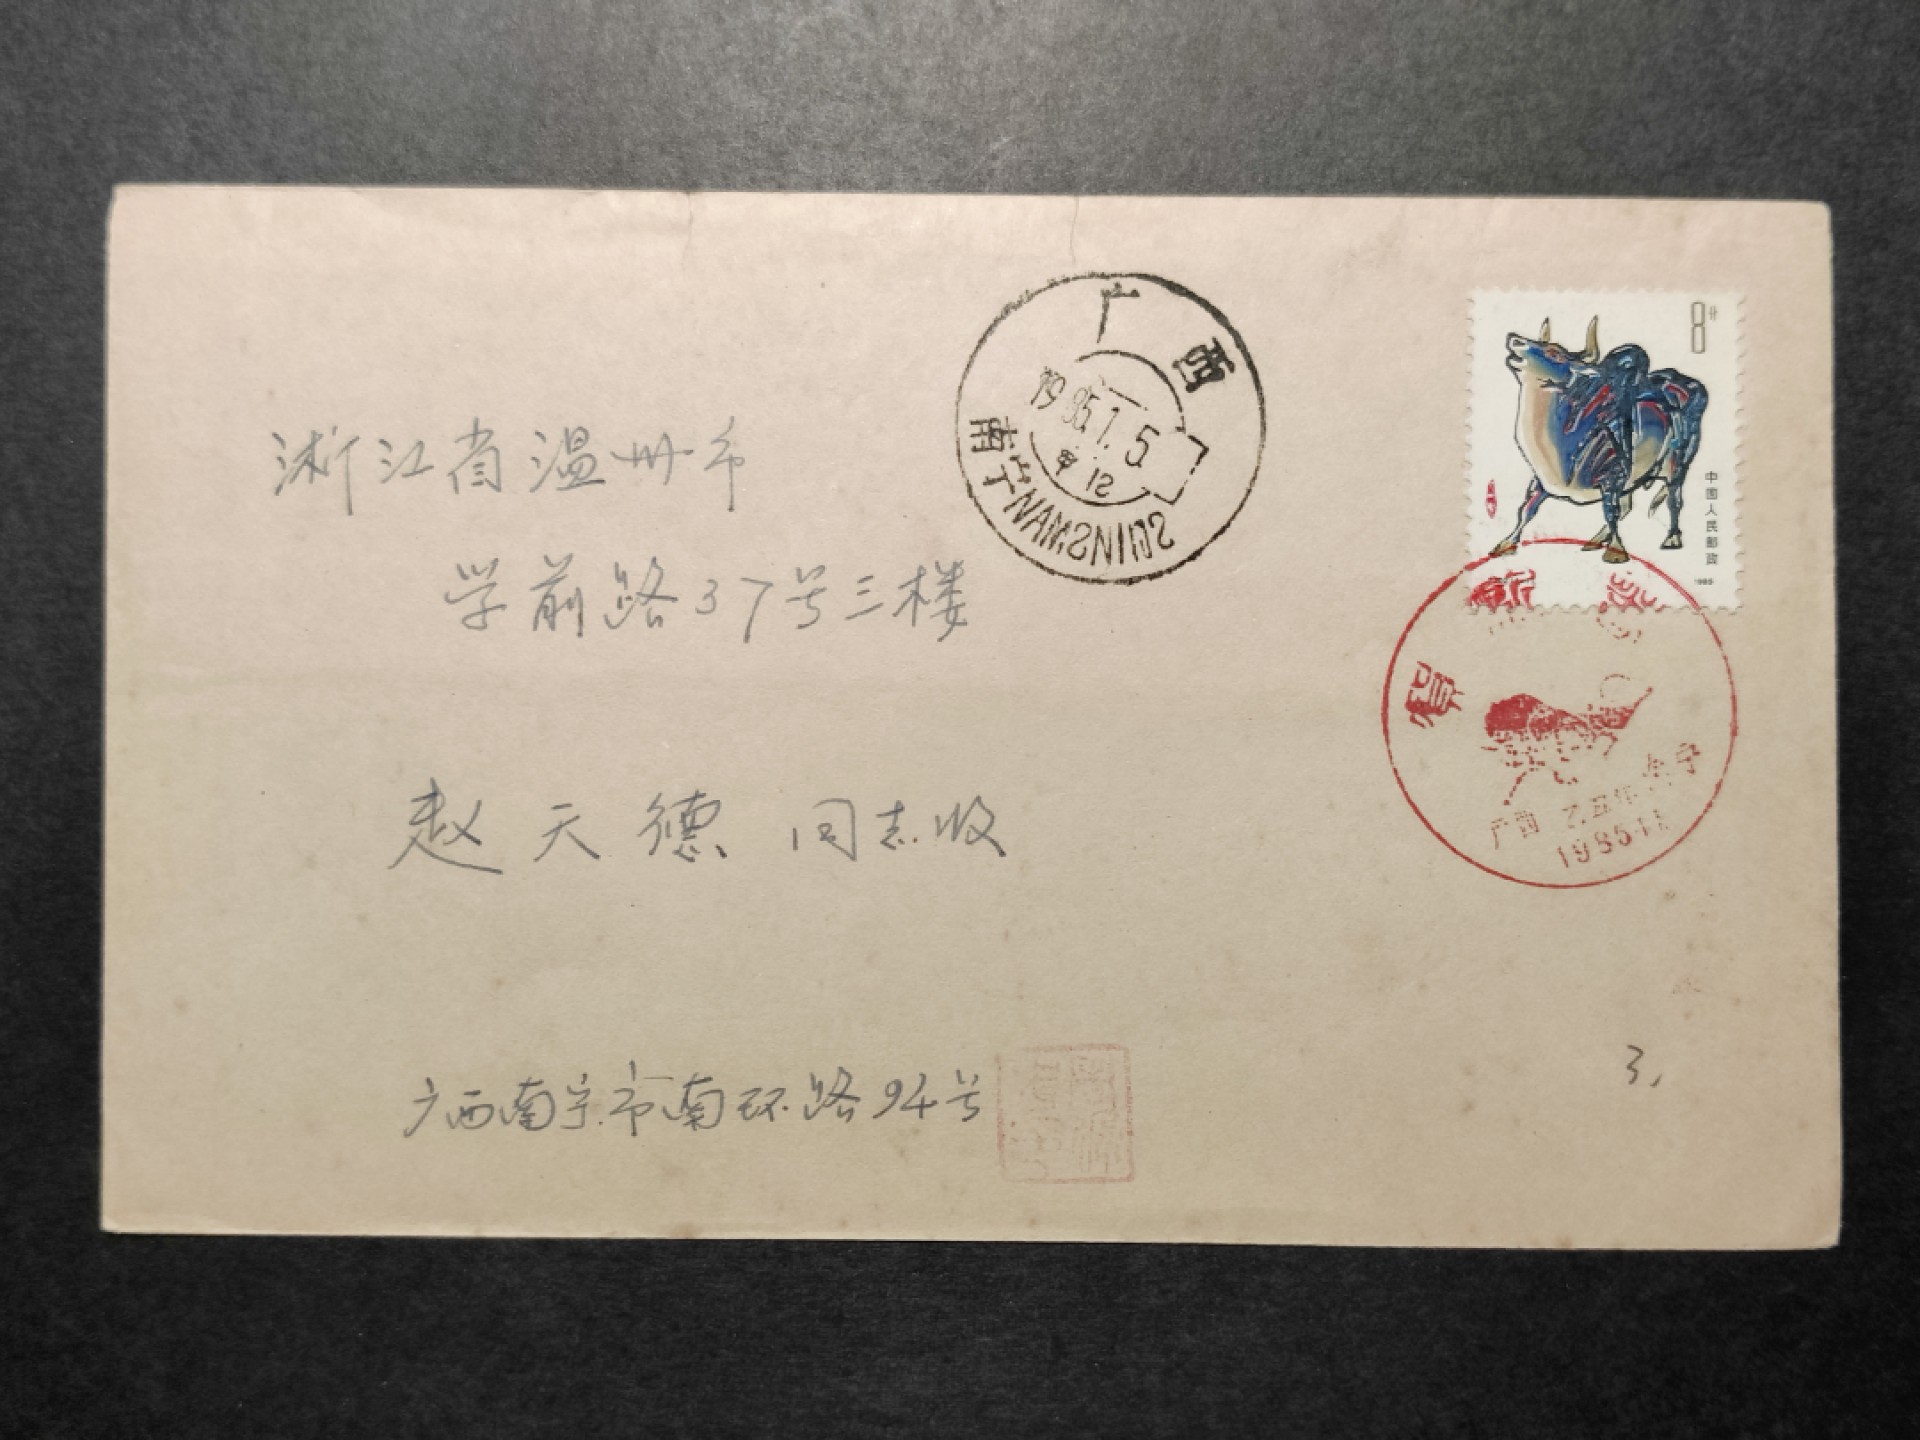 广西
1985.1.5
甲 12
南宁 NAMSNING
8分
中国人民邮政
1985
浙江省温州市
学前路37号三楼
赵天德 同志收
贺
广西 乙丑年 南宁
1985.1.1
3,
广西南宁市南环路94号